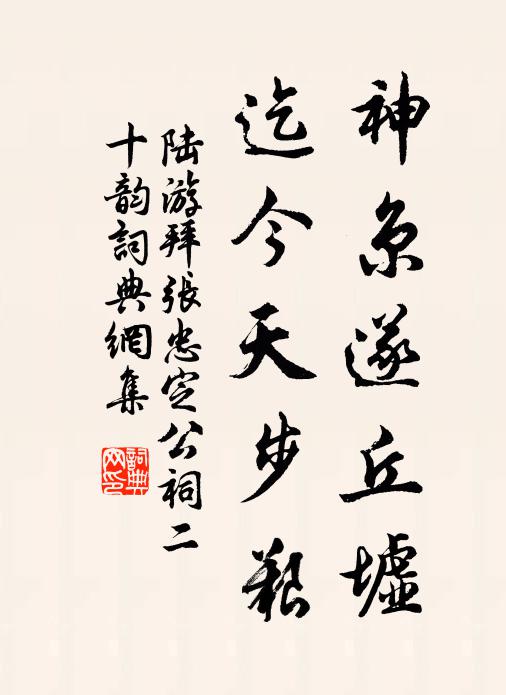 神京遂丘墟
迄今天步艱
陆游拜張忠定公祠二
十韵詞典網集
詞典
网印